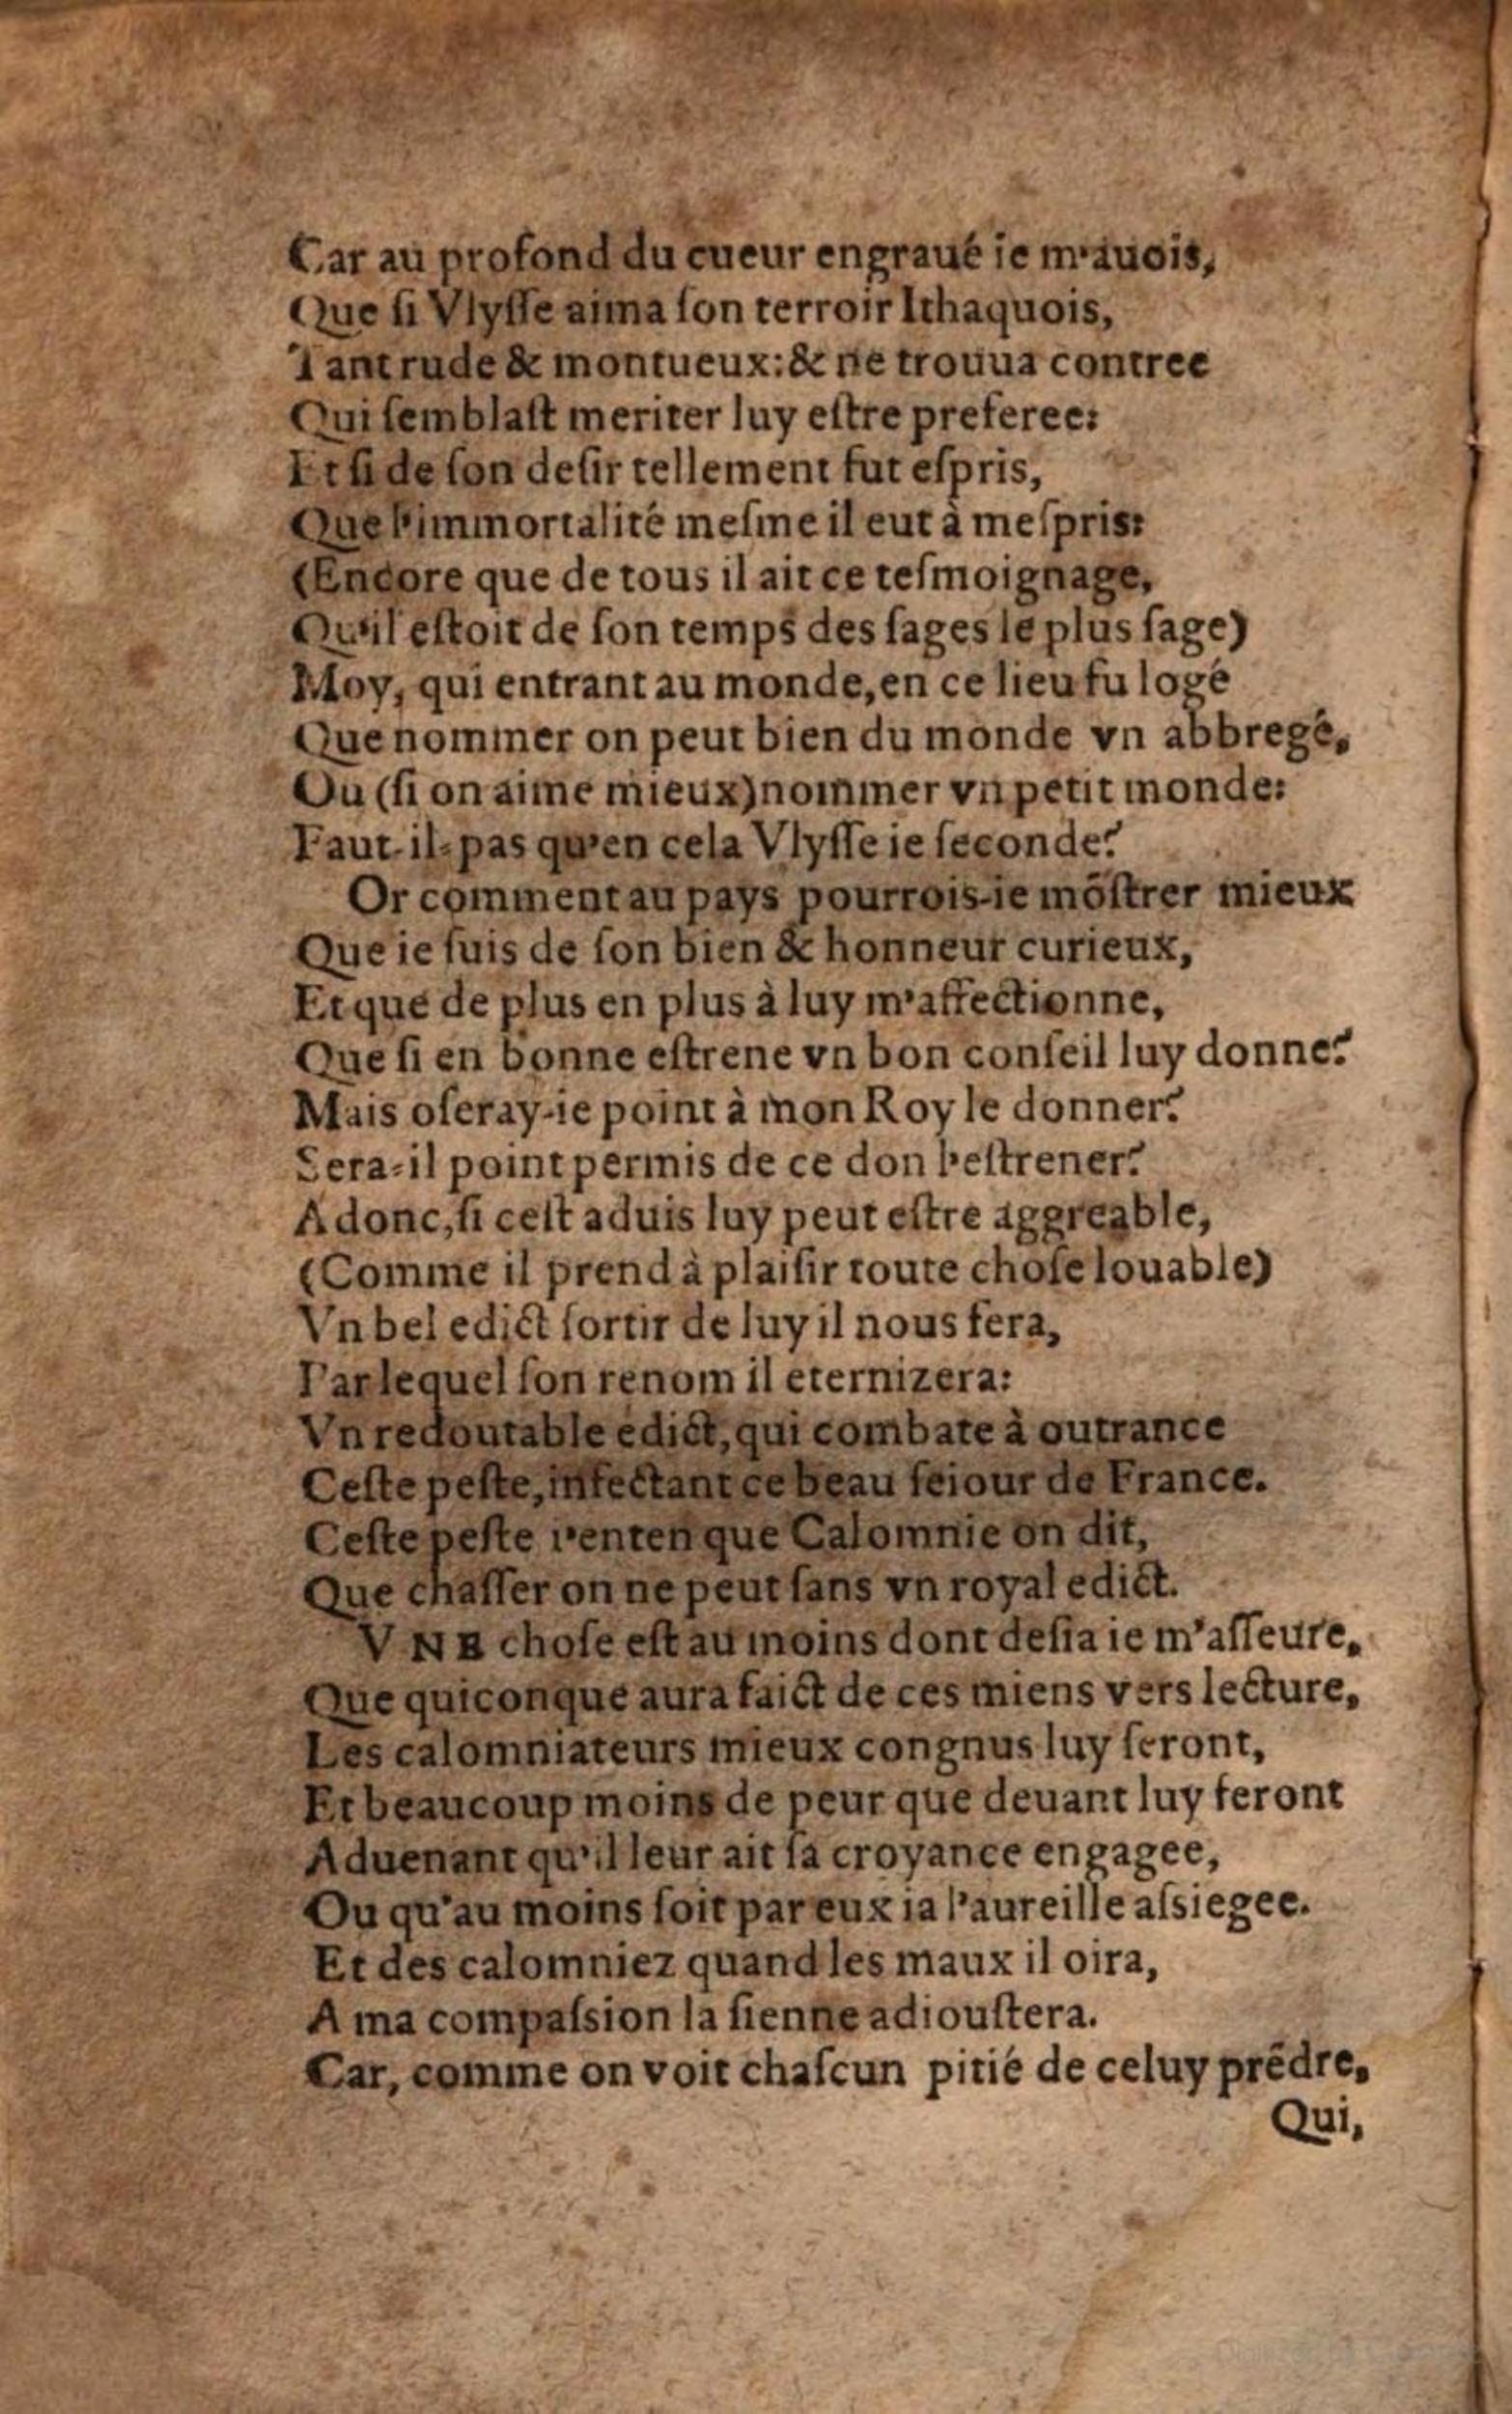 Car au profond du cueur engraué ie m'auois,
Que ſi Vlyſſe aima ſon terroir Ithaquois,
Tant rude & montueux: & ne trouua contree
Qui ſemblaſt meriter luy eſtre preferee:
Et ſi de ſon deſir tellement fut eſpris,
Que l'immortalité meſme il eut à meſpris:
(Encore que de tous il ait ce teſmoignage,
Qu'il eſtoit de ſon temps des ſages le plus ſage)
Moy, qui entrant au monde, en ce lieu fu logé
Que nommer on peut bien du monde vn abbregé,
Ou (ſi on aime mieux) nommer vn petit monde:
Faut-il-pas qu'en cela Vlyſſe ie ſeconde?
Or comment au pays pourrois-ie mõſtrer mieux
Que ie ſuis de ſon bien & honneur curieux,
Et que de plus en plus à luy m'affectionne,
Que ſi en bonne eſtrene vn bon conſeil luy donne?
Mais oſeray-ie point à mon Roy le donner?
Sera-il point permis de ce don l'eſtrener?
Adonc, ſi ceſt aduis luy peut eſtre aggreable,
(Comme il prend à plaiſir toute choſe louable)
Vn bel edict ſortir de luy il nous fera,
Par lequel ſon renom il eternizera:
Vn redoutable edict, qui combate à outrance
Ceſte peſte, infectant ce beau ſeiour de France.
Ceſte peſte i'enten que Calomnie on dit,
Que chaſſer on ne peut ſans vn royal edict.
VNE choſe eſt au moins dont deſia ie m'aſſeure,
Que quiconque aura faict de ces miens vers lecture,
Les calomniateurs mieux congnus luy ſeront,
Et beaucoup moins de peur que deuant luy feront
Aduenant qu'il leur ait ſa croyance engagee,
Ou qu'au moins ſoit par eux ia l'aureille aſsiegee.
Et des calomniez quand les maux il oira,
A ma compaſsion la ſienne adiouſtera.
Car, comme on voit chaſcun pitié de celuy prẽdre,
Qui,